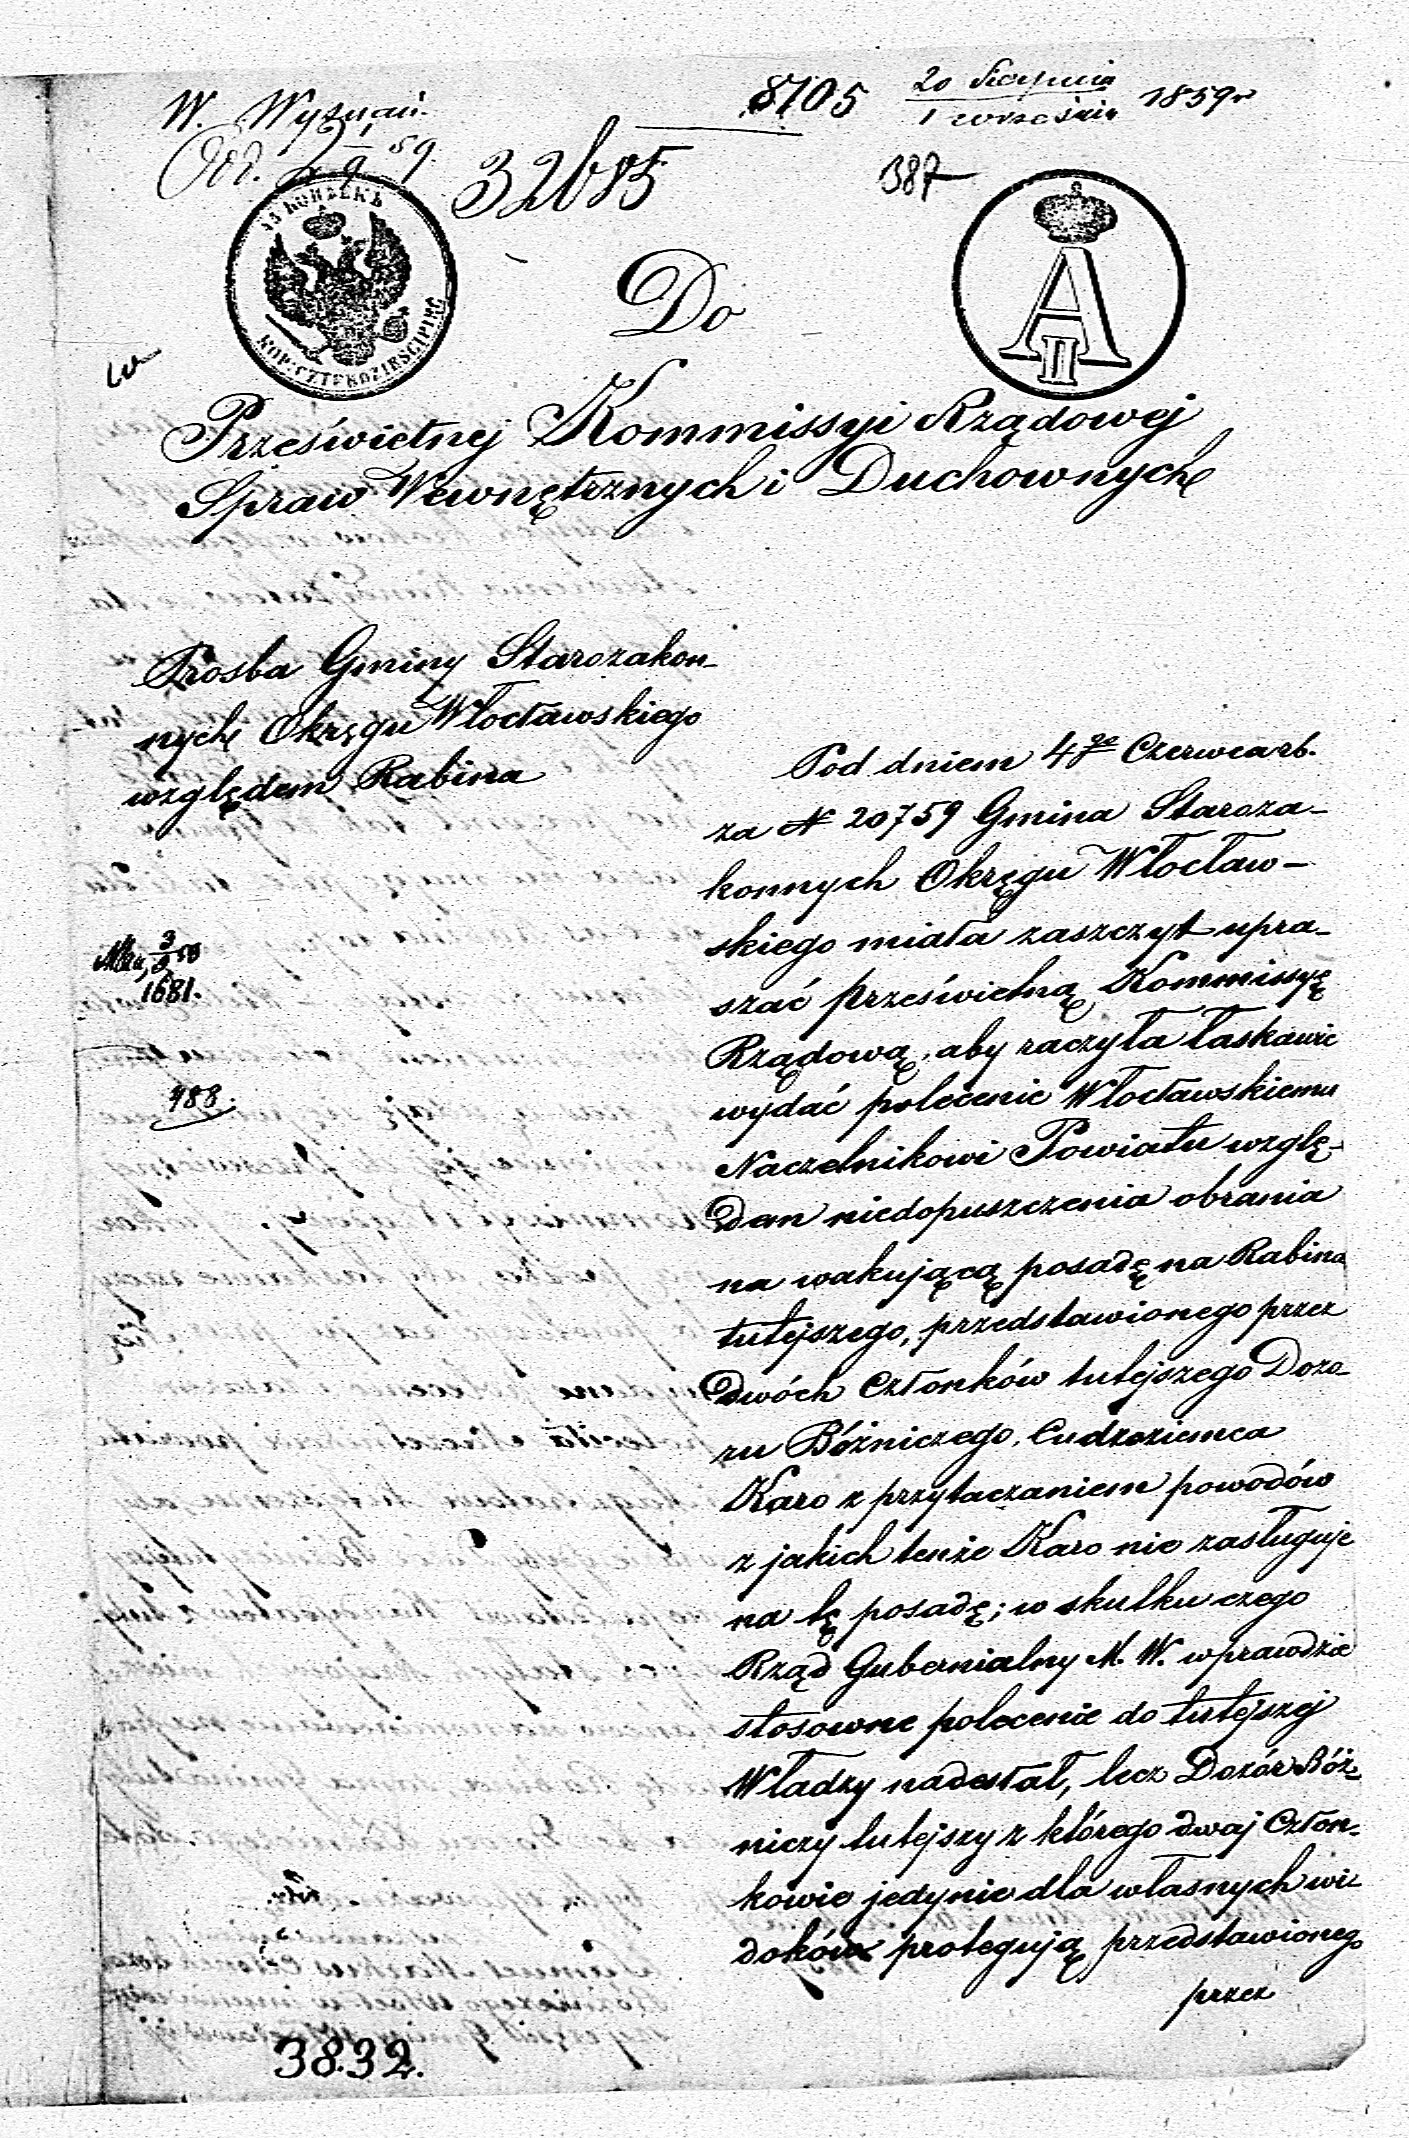 W. Wyznań.
8705 20 Sierpnia
1 września 1859 r
32685
387
КОПѢЕКЪ
KOP: CZTERDZIEŚCI PIĘĆ
A II
Do
Prześwietnej Kommissyi Rządowej
Spraw Wewnętrznych i Duchownych
Prosba Gminy Starozakon-
nych Okręgu Włocławskiego
względem Rabina
1681.
488.
Pod dniem 4go Czerwca rb.
za N 20759 Gmina Staroza-
konnych Okręgu Włocław-
skiego miała zaszczyt upra-
szać prześwietną Kommissyę
Rządową, aby raczyła łaskawie
wydać polecenie Włocławskiemu
Naczelnikowi Powiatu wzglę-
dem niedopuszczenia obrania
na wakującą posadę na Rabina
tutejszego, przedstawionego przez
dwóch Członków tutejszego Dozo-
ru Bóżniczego, Cudzoziemca
Karo z przytaczaniem powodów
z jakich tenże Karo nie zasługuje
na tę posadę; w skutku czego
Rząd Gubernialny M. W. wprawdzie
stosowne polecenie do tutejszej
Władzy nadesłał, lecz Dozór Bóż-
niczy tutejszy z którego dwaj Człon-
kowie jedynie dla własnych wi-
doków protegują przedstawionego
przez
3832.